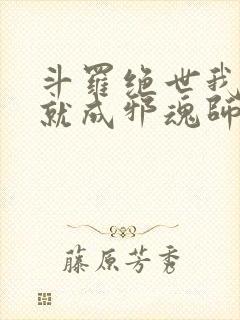 斗羅绝世我
就成邪魂師
藤原芳秀